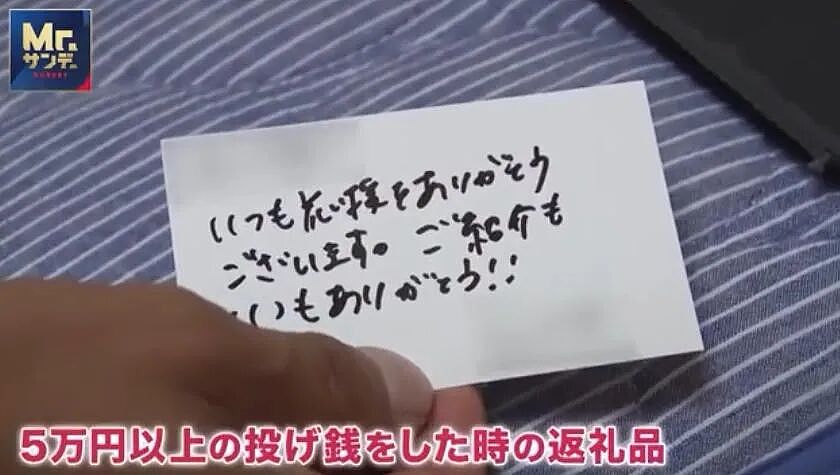 Mr.
サンデー
SUNDAY
いつも応援をありがとう
ございます。ご紹介も
いつもありがとう!!
5万円以上の投げ銭をした時の返礼品